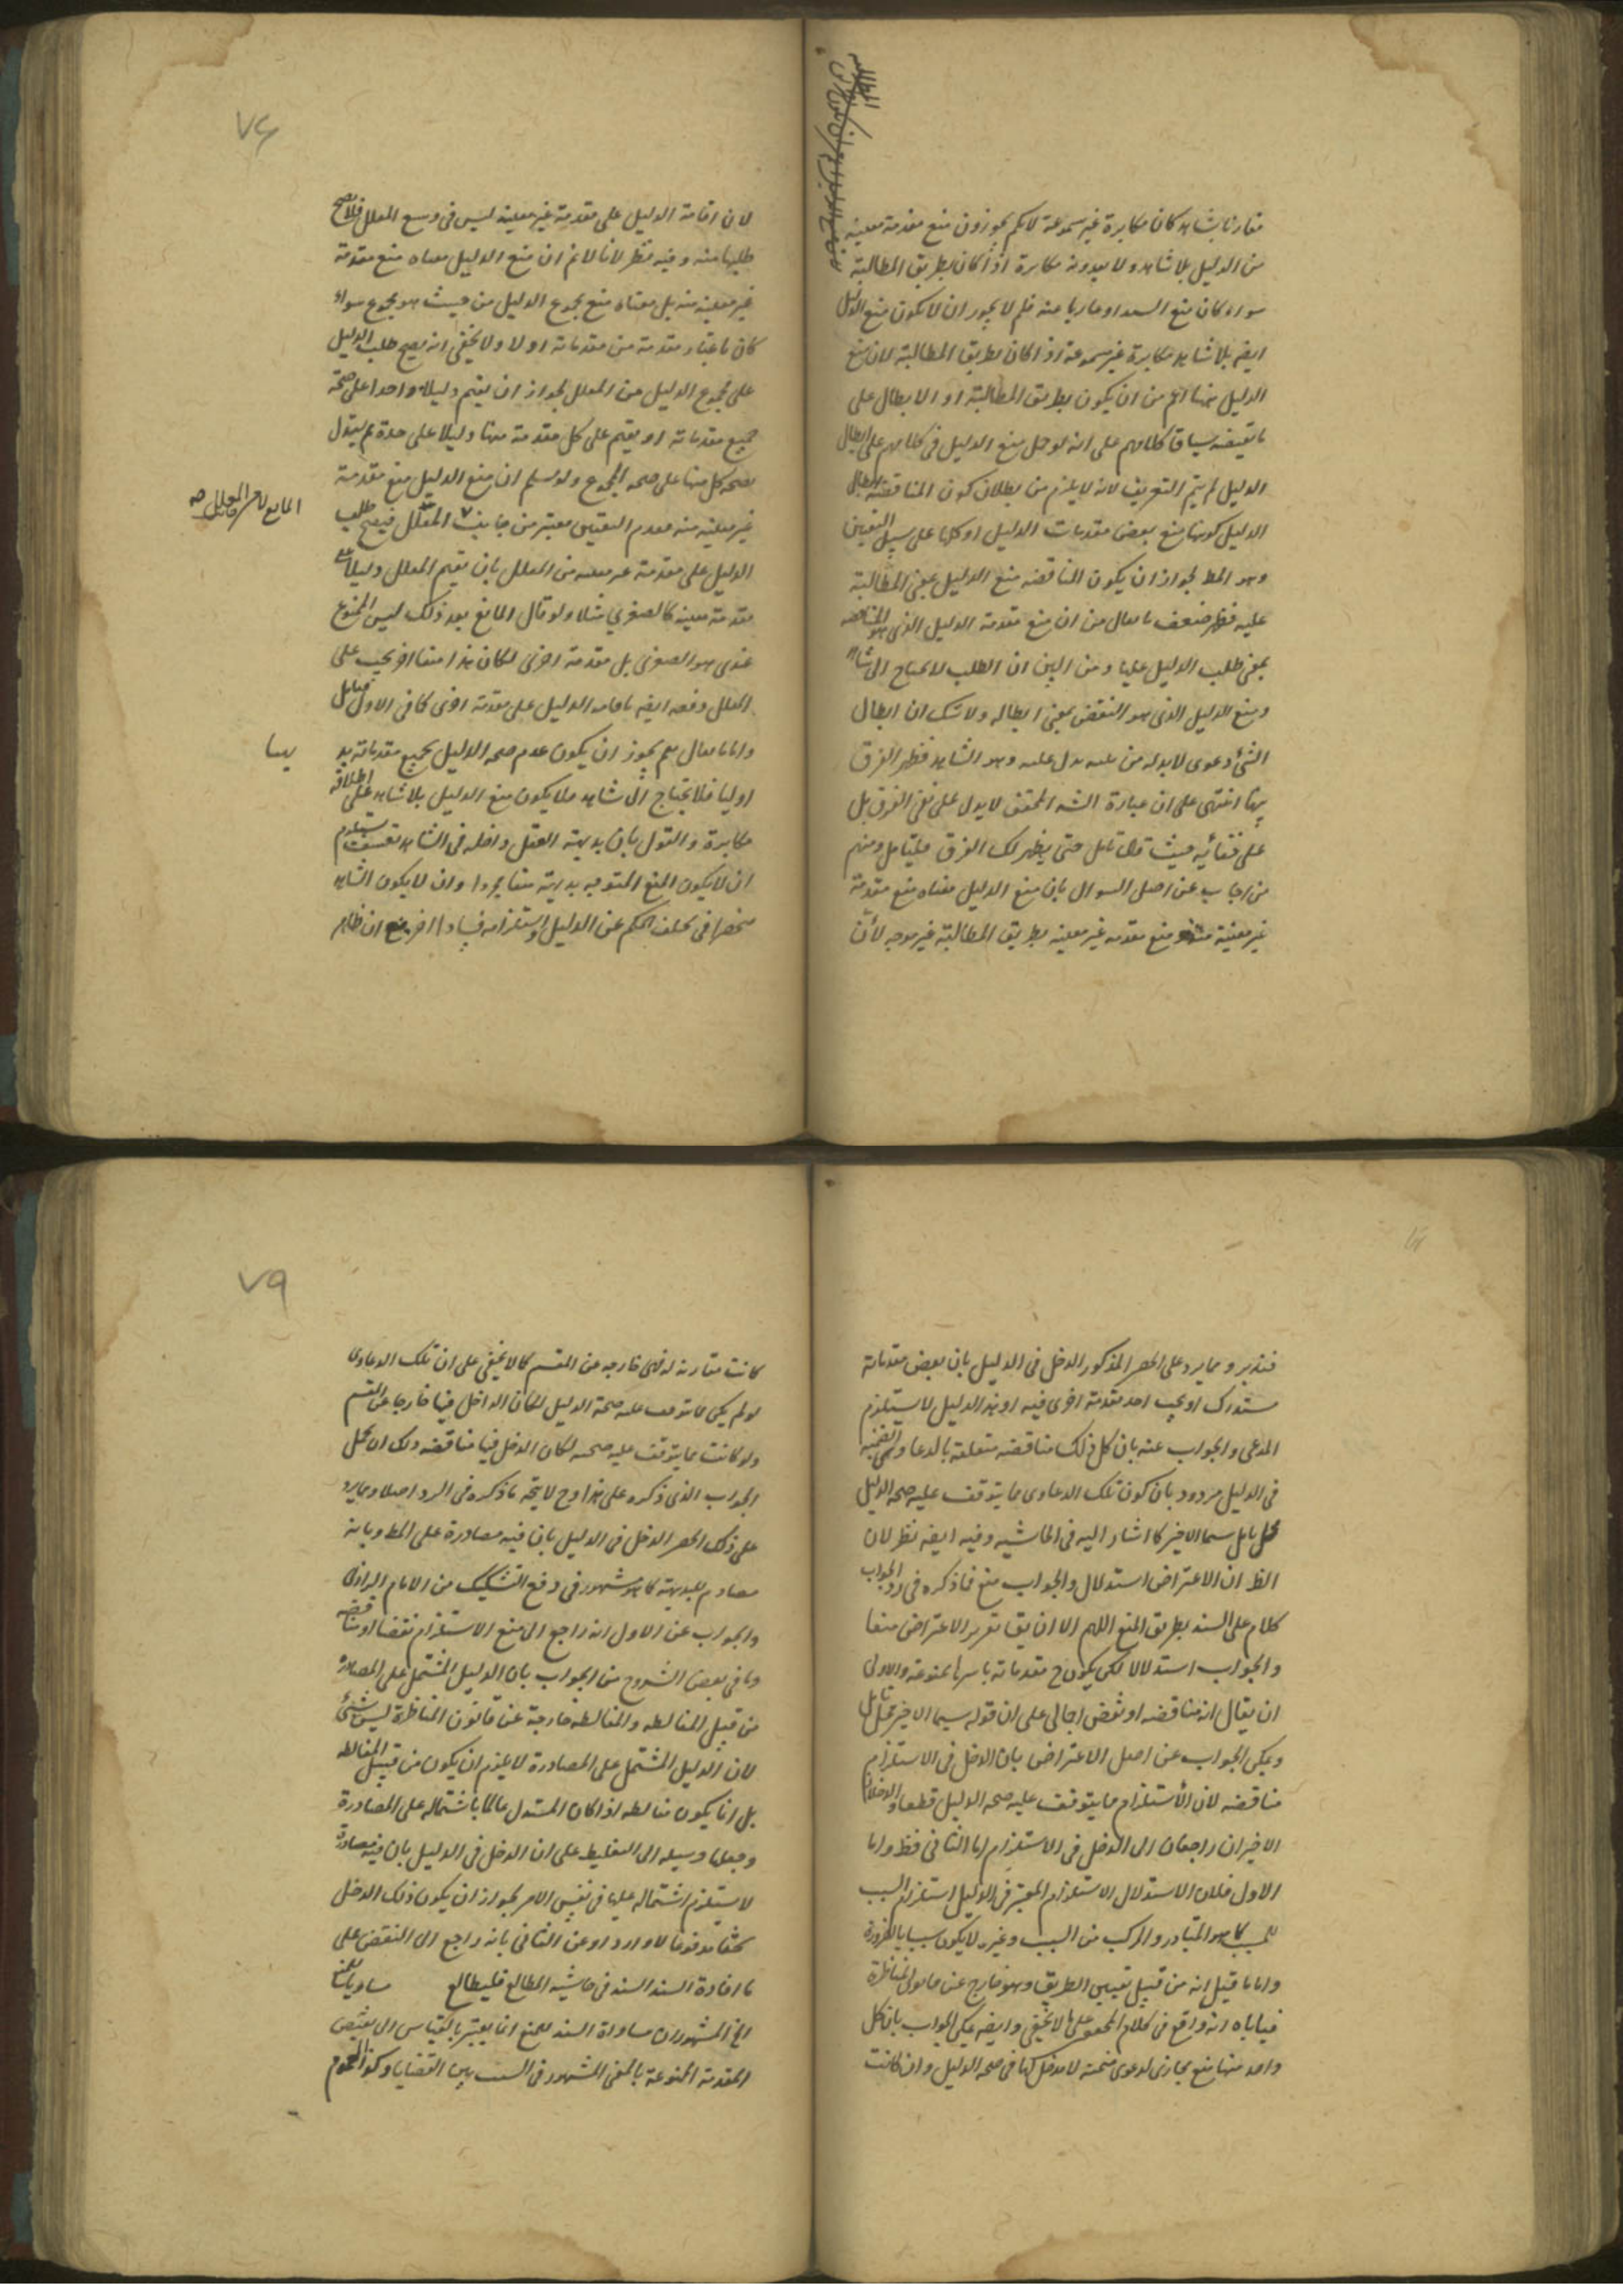 مقارنا بشاهد كان مكابرة غير مسموعة لانكم تجوزون منع مقدمة معينة
من الدليل بلا شاهد ولا يعدونه مكابرة اذا كان بطريق المطالبة
سواء كان منع السند او عاريا عنه فلم لا يجوز ان لا يكون منع الدليل
ايضه بلا شاهد مكابرة غير مسموعة اذا كان بطريق المطالبة لان منع
الدليل ههنا اعم من ان يكون بطريق المطالبة او الابطال على
ما يقتضيه سياق كلامهم على انه لو حمل منع الدليل في كلامهم على ابطال
الدليل لم يتم التعريف لانه لا يلزم من بطلان كون المناقضة ابطال
الدليل كونها منع بعض مقدمات الدليل او كلها على سبيل التعيين
وهو المط لجواز ان يكون المناقضه منع الدليل بمعنى المطالبة
عليه فظهر ضعف ما يقال من ان منع مقدمة الدليل الذى هو المناقضه
بمعنى طلب الدليل عليها ومن البين ان الطلب لا يحتاج الى شاهد
ومنع الدليل الذى هو النقض بمعنى ابطاله ولا شك ان ابطال
الشئ دعوى لا بد له من بينه يدل عليه وهو الشاهد فظهر الفرق
بينها انتهى على ان عبارة الشه المحقق لا يدل على نفى الفرق بل
على خفائه حيث قال تأمل حتى يظهر لك الفرق فليتأمل ومنهم
من اجاب عن اصل السوال بان منع الدليل معناه منع مقدمة
غير معينة منه ومنع مقدمه غير معينه بطريق المطالبة غير موجه لان
لان اقامة الدليل على مقدمة غير معينه ليس في وسع المعلل فلا يصح
طلبها منه وفيه نظر لانا لانم ان منع الدليل معناه منع مقدمة
غير معينه منه بل معناه منع مجموع الدليل من حيث هو مجموع سواء
كان باعتبار مقدمة من مقدماته اولا ولا يخفى انه يصح طلب الدليل
على مجموع الدليل من المعلل لجواز ان يقيم دليلا واحدا على صحة
جميع مقدماته او يقيم على كل مقدمة منها دليلا على حدة ثم يقول
بصحة كل منها على صحه المجموع ولو سلم ان منع الدليل منع مقدمة
غير معينه منه فعدم التعيين معتبر من جانب المعلل فيصح طلب
الدليل على مقدمة غير معينه من المعلل بان يقيم المعلل دليلا على
مقدمة معينه كالصغرى مثلا ولو قال المانع بعد ذلك ليس الممنوع
عندى هو الصغرى بل مقدمة اخرى لكان هذا منعا اخر يجب على
المعلل دفعه ايضه باقامه الدليل على مقدمة اخرى كما في الاول تأمل
واما ما يقال لم يجوز ان يكون عدم صحه الدليل بجميع مقدماته بد
يهيا
اوليا فلا يحتاج الى شاهد فلا يكون منع الدليل بلا شاهد على اطلاقه
مكابرة والقول بان بديهة العقل داخله في الشاهد تعسف يستلزم
ان لا يكون المنع المتوجه بديهته منعا مجردا وان لا يكون الشاهد
منحصرا في تخلف الحكم عن الدليل واستلزامه فسادا اخر مع ان ظاهر
المانع لا من المعلل صه
٧٤
فتدبر ومما يرد على الحصر المذكور الدخل في الدليل بان بعض مقدماته
مستدرك او يجب احد مقدمة اخرى فيه او هذا الدليل لا يستلزم
المدعى والجواب عنه بان كل ذلك مناقضه متعلقة بالدعاوى الضمنيه
في الدليل مردود بان كون تلك الدعاوى مما يتوقف عليه صحه الدليل
محل تامل سيما الاخير كما اشار اليه في الحاشيه وفيه ايضه نظر لان
الظ ان الاعتراض استدلال والجواب منع فما ذكره في رد الجواب
كلام على السند بطريق المنع اللهم الا ان يقا تقرير الاعتراض منعا
والجواب استدلالا لكن يكون ح مقدماته باسرها ممنوعة والاولى
ان يقال انه مناقضه او نقض اجمالى على ان قوله سيما الاخير محل تأمل
ويمكن الجواب عن اصل الاعتراض بان الدخل في الاستلزام
مناقضه لان الاستلزام مما يتوقف عليه صحه الدليل قطعا والدخلان
الاخيران راجعان الى الدخل في الاستلزام اما الثاني فظ واما
الاول فلان الاستدلال الاستلزام المعتبر في الدليل استلزام السبب
للمسبب كما هو المتبادر والمركب من السبب وغيره لا يكون سببا بالضرورة
واما ما قيل انه من قبيل تعيين الطريق وهو خارج عن قانون المناظرة
فياباه انه واقع في كلام المحققين على ما لا يخفى وايضه يمكن الجواب بان كل
واحد منها منع مجازى لدعوى ضمنيه لا مدخل لها في صحه الدليل وان كانت
كانت مقارنه له فهى خارجه عن المقسم كما لا يخفى على ان تلك الدعاوى
لو لم يكن مما يتوقف عليه صحة الدليل لكان الداخل فيها خارجا عن القسم
ولو كانت مما يتوقف عليه صحته لكان الدخل فيها مناقضه ولك ان تحمل
الجواب الذى ذكره على هذا وح لا يتجه ما ذكره في الرد اصلا ومما يرد
على ذلك الحصر الدخل في الدليل بان فيه مصادرة على المط وبانه
مصادم للبديهة كما هو مشهور في دفع التشكيك من الامام الرازى
والجواب عن الاول انه راجع الى منع الاستلزام نقضا او مناقضه
وما في بعض الشروح من الجواب بان الدليل المشتمل على المصادرة
من قبيل المغالطه والمغالطه خارجة عن قانون المناظرة ليس بشئ
لان الدليل المشتمل على المصادرة لا يلزم ان يكون من قبيل المغالطه
بل انما يكون مغالطه اذا كان المستدل عالما باشتماله على المصادرة
وجعلها وسيله الى التغليط على ان الدخل في الدليل بان فيه مصادرة
لا يستلزم اشتماله عليها في نفس الامر لجواز ان يكون ذلك الدخل
بحثا مدفوعا لا واردا وعن الثاني بانه راجع الى النقض على
ما افادة السند السند في حاشيه المطالع فليطالع مساويا للمنع
الخ المشهور ان مساواة السند للمنع انما يعتبر بالقياس الى نقيض
المقدمة الممنوعة بالمعنى المشهور في النسب بين القضايا وكذا العموم
٧٩